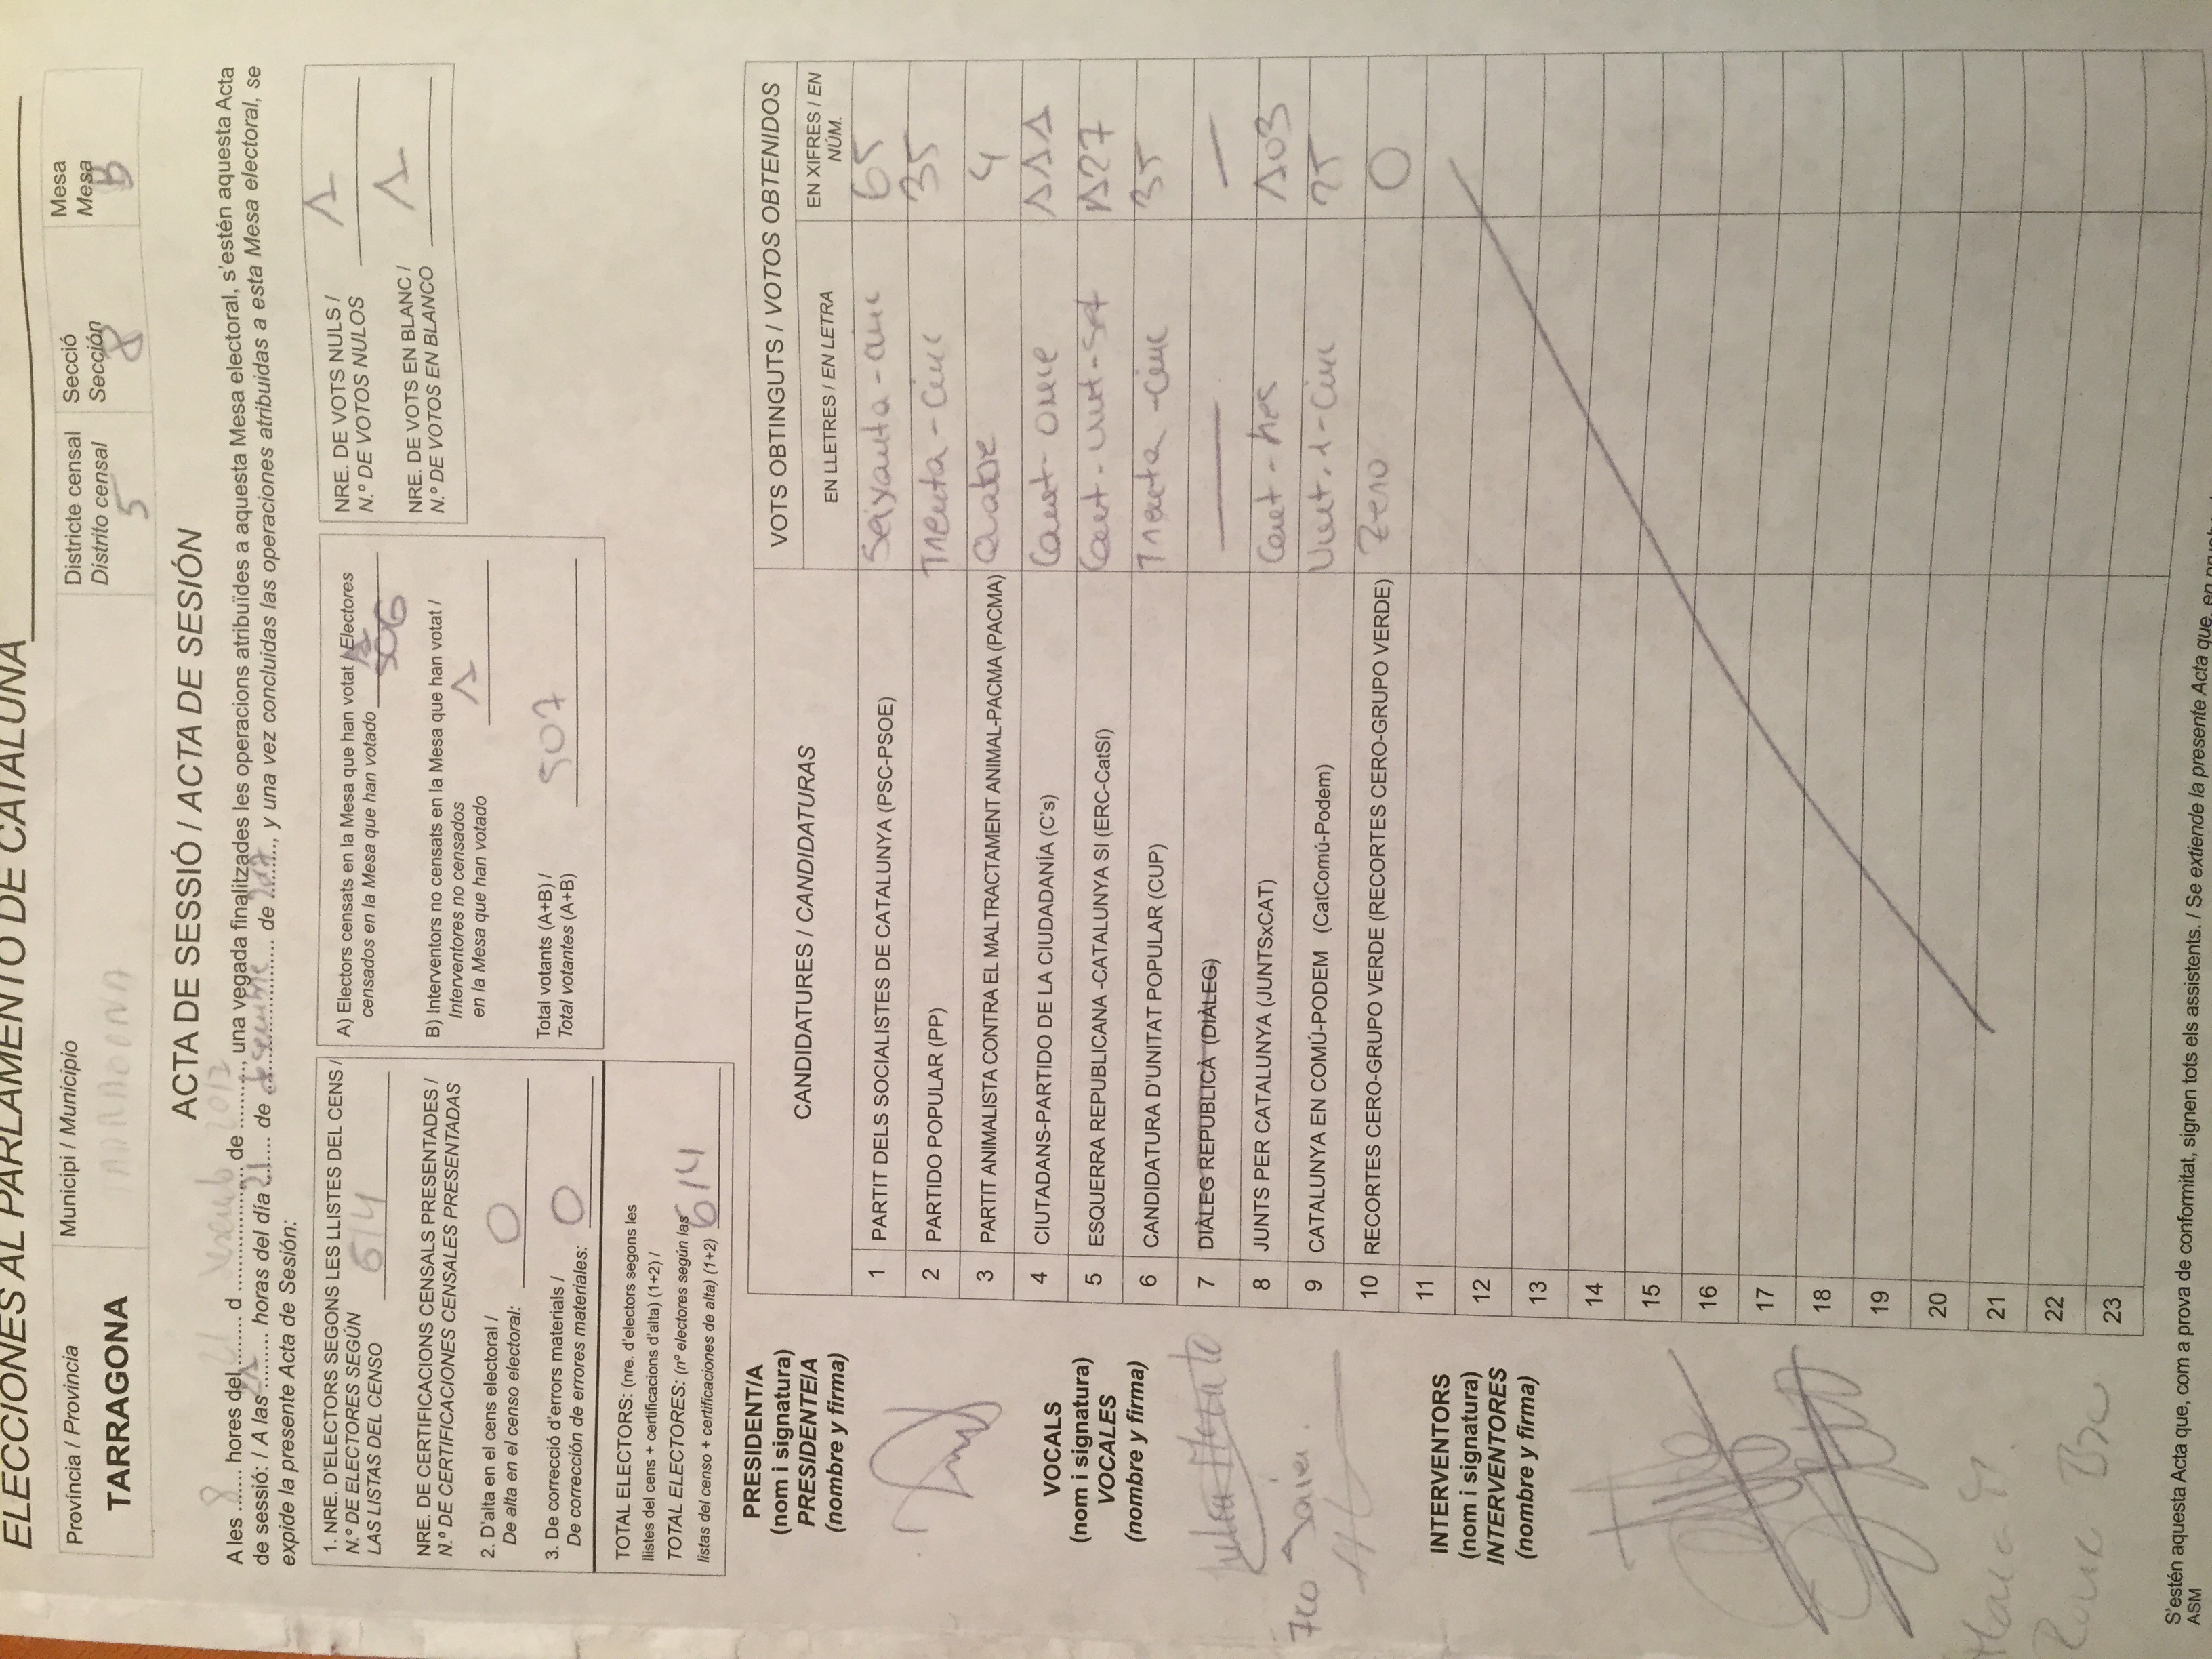 ELECCIONES AL PARLAMENTO DE CATALUÑA
Província / Provincia
TARRAGONA
Municipi / Municipio
TARRAGONA
Districte censal
Distrito censal
5
Secció
Sección
8
Mesa
Mesa
B
ACTA DE SESSIÓ / ACTA DE SESIÓN
A les 8 hores del 21 d desemb de 2017, una vegada finalitzades les operacions atribuïdes a aquesta Mesa electoral, s'estén aquesta Acta
de sessió: / A las 21 horas del día 21 de desembre de 2017, y una vez concluidas las operaciones atribuidas a esta Mesa electoral, se
expide la presente Acta de Sesión:
1. NRE. D'ELECTORS SEGONS LES LLISTES DEL CENS /
N.º DE ELECTORES SEGÚN
LAS LISTAS DEL CENSO 614
NRE. DE CERTIFICACIONS CENSALS PRESENTADES /
N.º DE CERTIFICACIONES CENSALES PRESENTADAS
2. D'alta en el cens electoral /
De alta en el censo electoral: 0
3. De correcció d'errors materials /
De corrección de errores materiales: 0
TOTAL ELECTORS: (nre. d'electors segons les
llistes del cens + certificacions d'alta) (1+2) /
TOTAL ELECTORES: (nº electores según las
listas del censo + certificaciones de alta) (1+2) 614
A) Electors censats en la Mesa que han votat / Electores
censados en la Mesa que han votado 506
B) Interventors no censats en la Mesa que han votat /
Interventores no censados
en la Mesa que han votado 1
Total votants (A+B) /
Total votantes (A+B) 507
NRE. DE VOTS NULS /
N.º DE VOTOS NULOS 1
NRE. DE VOTS EN BLANC /
N.º DE VOTOS EN BLANCO 1
PRESIDENT/A
(nom i signatura)
PRESIDENTE/A
(nombre y firma)
VOCALS
(nom i signatura)
VOCALES
(nombre y firma)
Fco Javier.
INTERVENTORS
(nom i signatura)
INTERVENTORES
(nombre y firma)
CANDIDATURES / CANDIDATURAS
VOTS OBTINGUTS / VOTOS OBTENIDOS
EN LLETRES / EN LETRA
EN XIFRES / EN
NÚM.
1 PARTIT DELS SOCIALISTES DE CATALUNYA (PSC-PSOE) Seixanta-cinc 65
2 PARTIDO POPULAR (PP) Trenta-cinc 35
3 PARTIT ANIMALISTA CONTRA EL MALTRACTAMENT ANIMAL-PACMA (PACMA) Quatre 4
4 CIUTADANS-PARTIDO DE LA CIUDADANÍA (C's) Cent-onze 111
5 ESQUERRA REPUBLICANA -CATALUNYA SI (ERC-CatSí) Cent-vint-set 127
6 CANDIDATURA D'UNITAT POPULAR (CUP) Trenta-cinc 35
7 DIÀLEG REPUBLICÀ (DIÀLEG)
8 JUNTS PER CATALUNYA (JUNTSxCAT) Cent-tres 103
9 CATALUNYA EN COMÚ-PODEM (CatComú-Podem) Vint-i-cinc 25
10 RECORTES CERO-GRUPO VERDE (RECORTES CERO-GRUPO VERDE) Zero 0
11
12
13
14
15
16
17
18
19
20
21
22
23
S'estén aquesta Acta que, com a prova de conformitat, signen tots els assistents. / Se extiende la presente Acta que, en
ASM